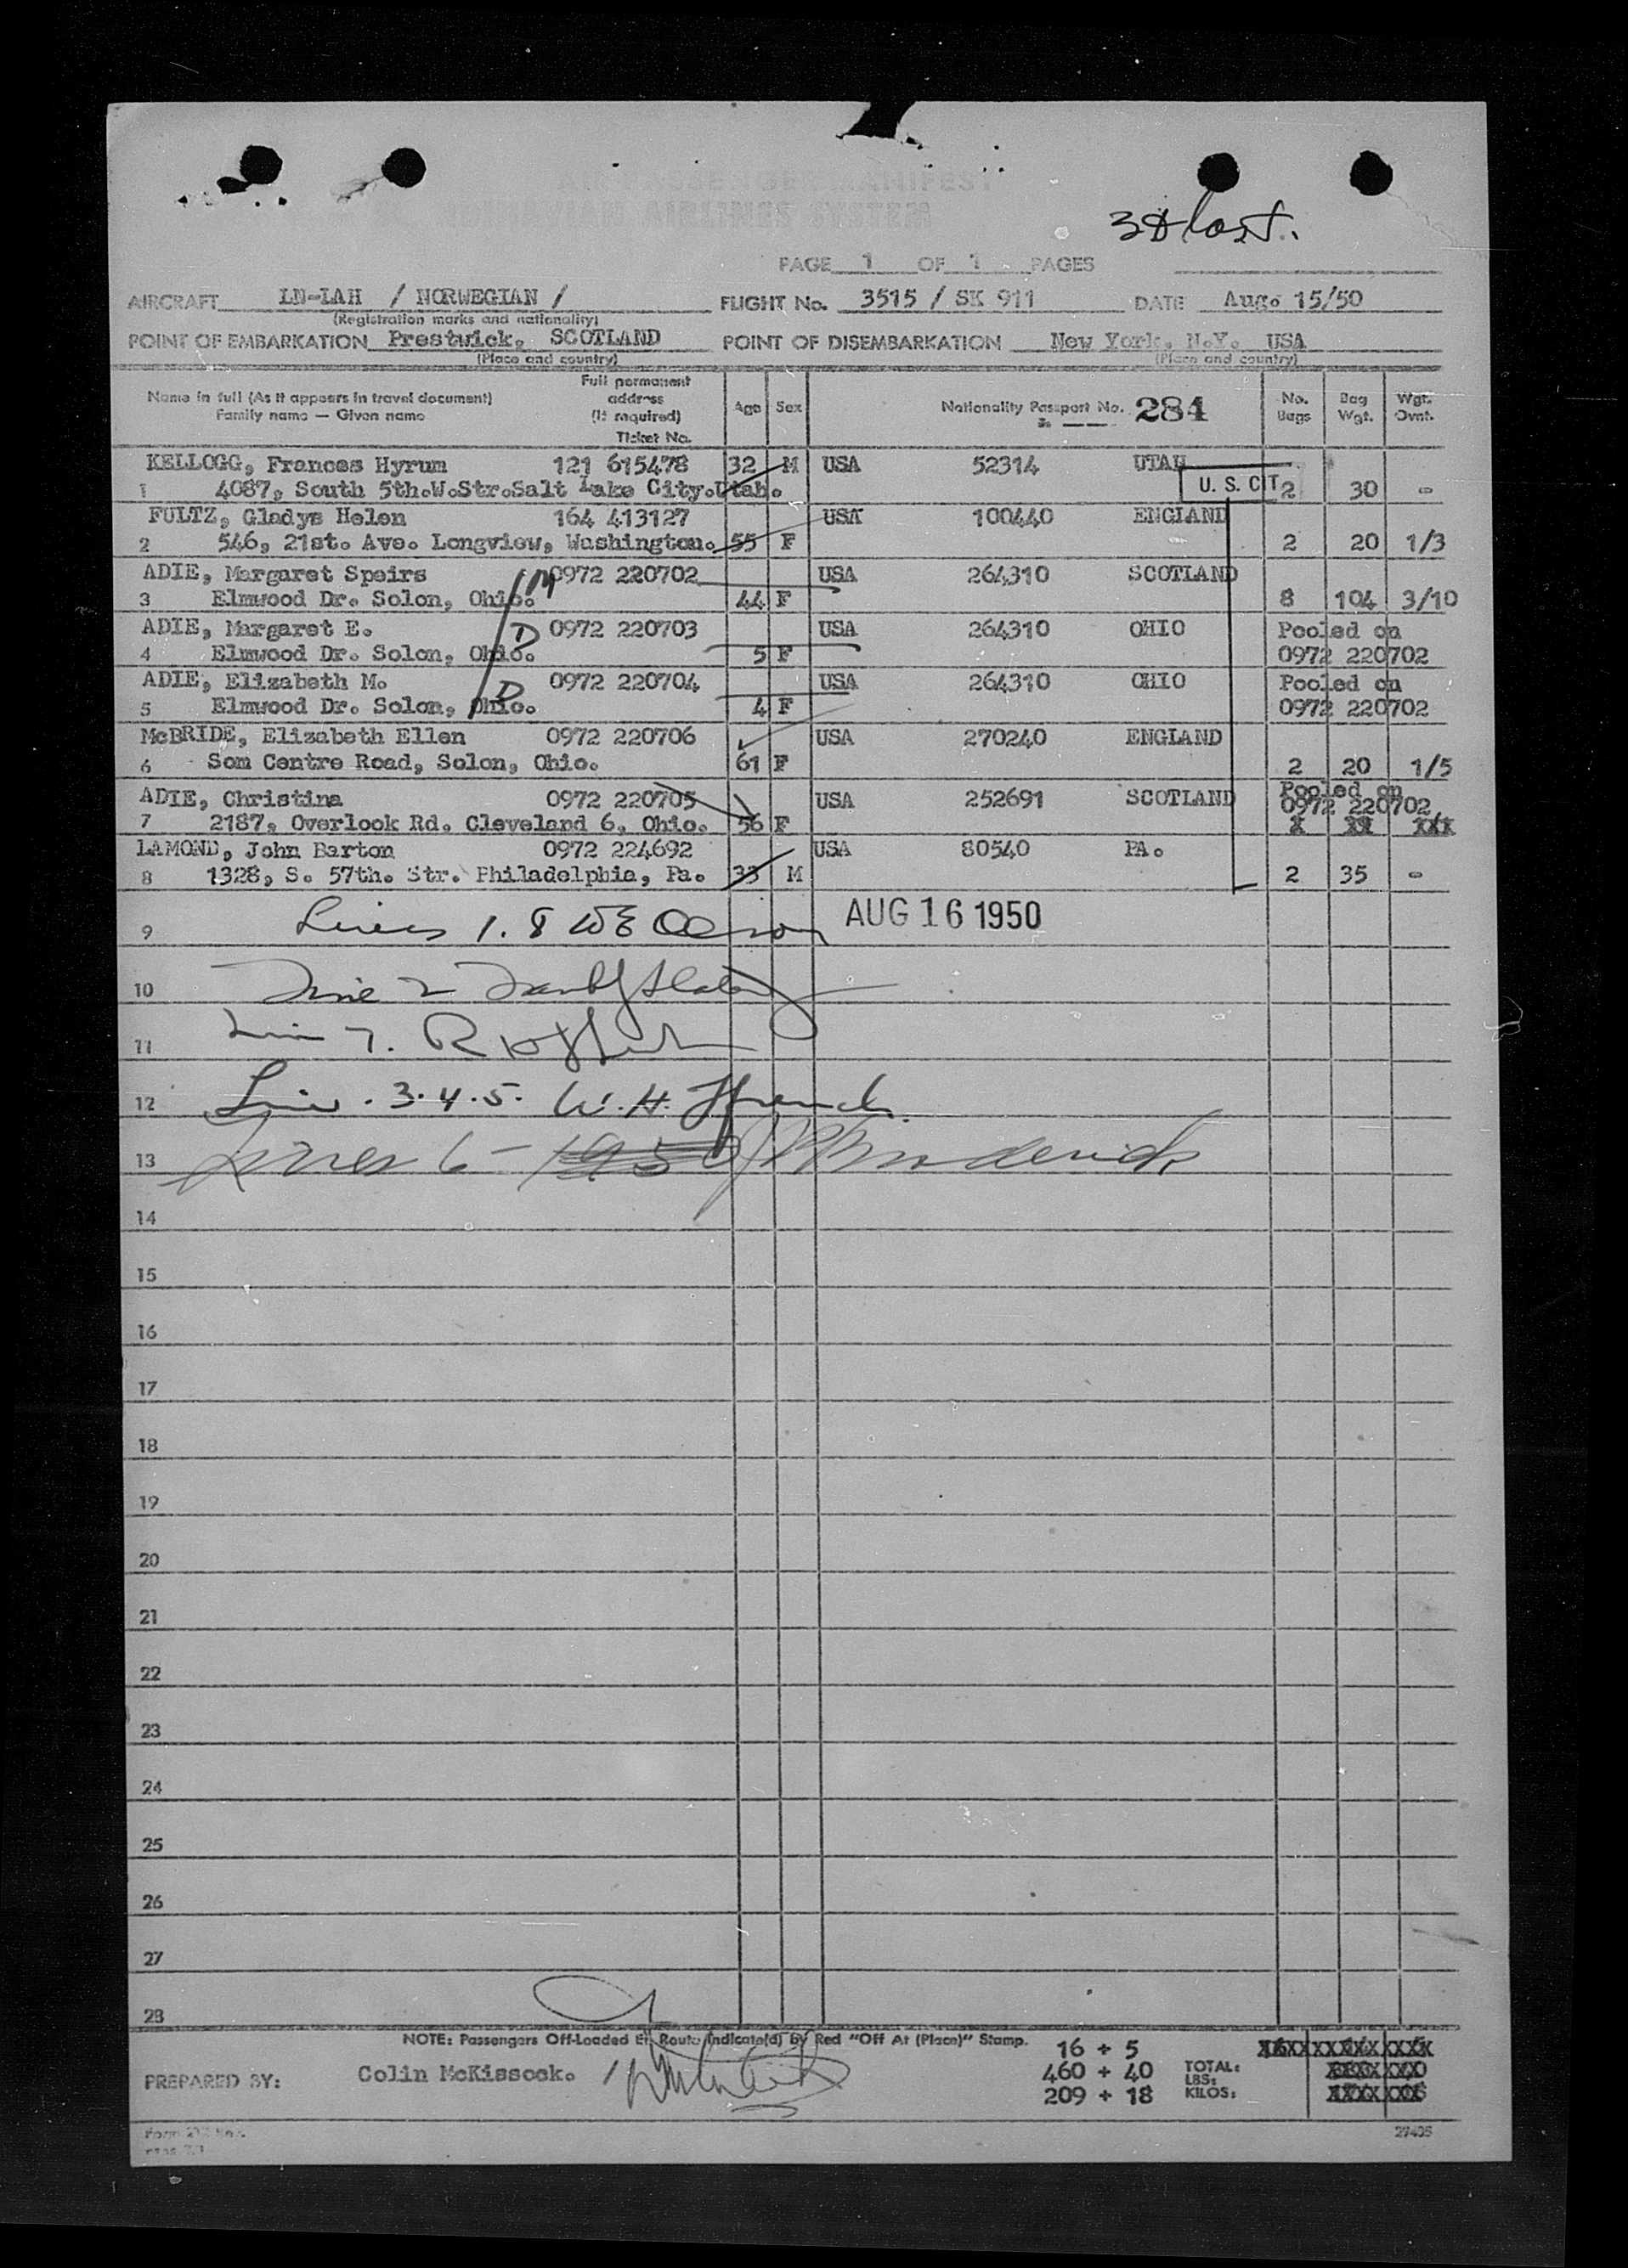 AIR PASSENGER MANIFEST
SCANDINAVIAN AIRLINES SYSTEM
PAGE 1 OF 1 PAGES
AIRCRAFT LN-IAH / NORWEGIAN / FLIGHT No. 3515 / SK 911 DATE Aug. 15/50
(Registration marks and nationality)
POINT OF EMBARKATION Prestwick, SCOTLAND POINT OF DISEMBARKATION New York, N.Y. USA
(Place and country) (Place and country)
Name in full (As it appears in travel document) Family name — Given name Full permanent address (If required) Ticket No. Age Sex Nationality Passport No. 284 No. Bags Bag Wgt. Wgt. Ovwt.
KELLOGG, Frances Hyrum 121 615478 32 M USA 52314 UTAH
1 4087, South 5th.W.Str.Salt Lake City.Utah. U. S. CIT 2 30 -
FULTZ, Gladys Helen 164 413127 USA 100440 ENGLAND
2 546, 21st. Ave. Longview, Washington. 55 F 2 20 1/3
ADIE, Margaret Speirs M 0972 220702 USA 264310 SCOTLAND
3 Elmwood Dr. Solon, Ohio. 44 F 8 104 3/10
ADIE, Margaret E. D 0972 220703 USA 264310 OHIO Pooled on
4 Elmwood Dr. Solon, Ohio. 5 F 0972 220702
ADIE, Elizabeth M. D 0972 220704 USA 264310 OHIO Pooled on
5 Elmwood Dr. Solon, Ohio. 4 F 0972 220702
McBRIDE, Elizabeth Ellen 0972 220706 USA 270240 ENGLAND
6 Som Centre Road, Solon, Ohio. 61 F 2 20 1/5
ADIE, Christina 0972 220705 USA 252691 SCOTLAND Pooled on 0972 220702
7 2187, Overlook Rd. Cleveland 6, Ohio. 56 F X XX XXX
LAMOND, John Barton 0972 224692 USA 80540 PA.
8 1328, S. 57th. Str. Philadelphia, Pa. 33 M 2 35 -
9 Lines 1. 8 AUG 16 1950
10
11
12 3.4.5. W.H.
13 Lines 6 -
14
15
16
17
18
19
20
21
22
23
24
25
26
27
28
NOTE: Passengers Off-Loaded En Route Indicate(d) by Red "Off At (Place)" Stamp.
16 + 5
460 + 40 TOTAL: LBS:
209 + 18 KILOS:
PREPARED BY: Colin McKissock.
27405